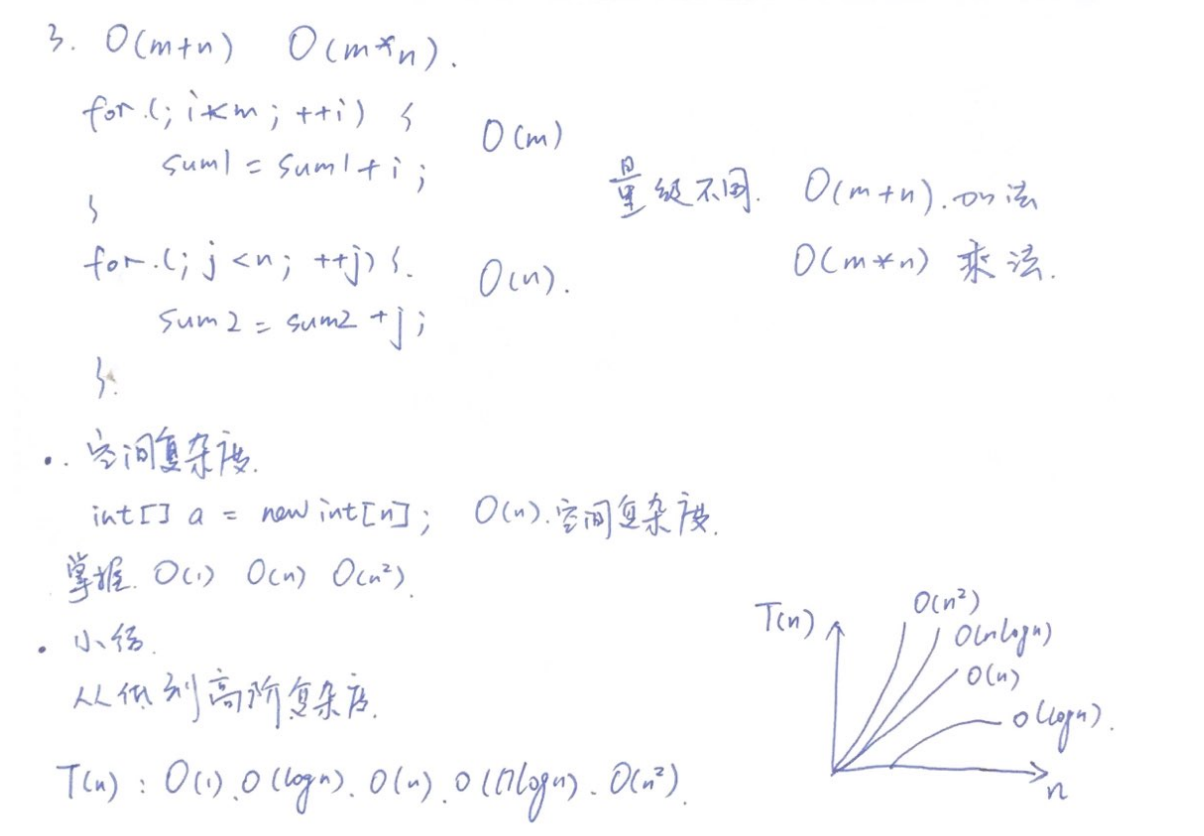 3. O(m+n) O(m*n).
for(; i<m; ++i) {
sum1 = sum1+i;
}
O(m)
for(; j<n; ++j) {
sum2 = sum2+j;
}.
O(n).
量级不同. O(m+n). 加法
O(m*n) 乘法.
·. 空间复杂度.
int[] a = new int[n]; O(n).空间复杂度.
掌握. O(1) O(n) O(n²).
· 小结.
从低到高阶复杂度.
T(n) : O(1).O(logn).O(n).O(nlogn).O(n²).
T(n)
O(n²)
O(nlogn)
O(n)
O(logn).
n